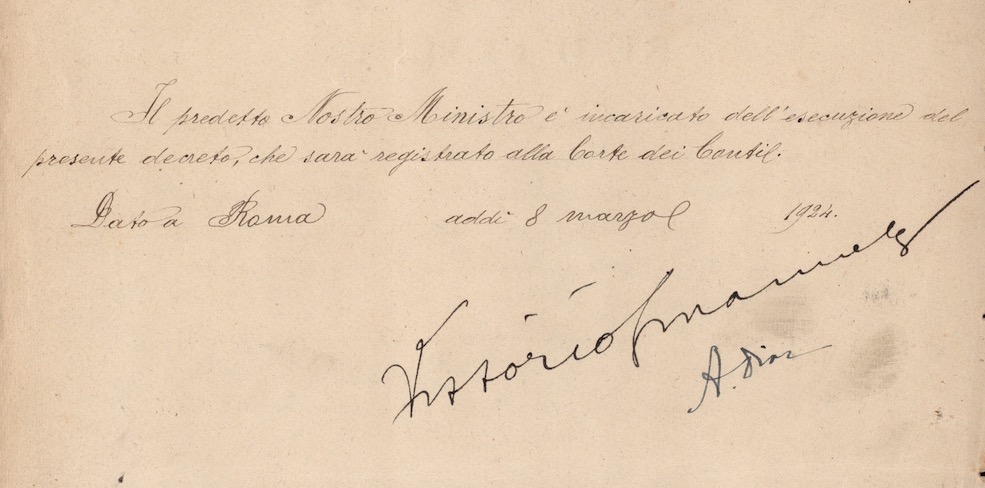 Il predetto Nostro Ministro è incaricato dell'esecuzione del
presente decreto, che sarà registrato alla Corte dei Conti.
Dato a Roma addì 8 marzo 1924.
Vittorio Emanuele
A. Diaz